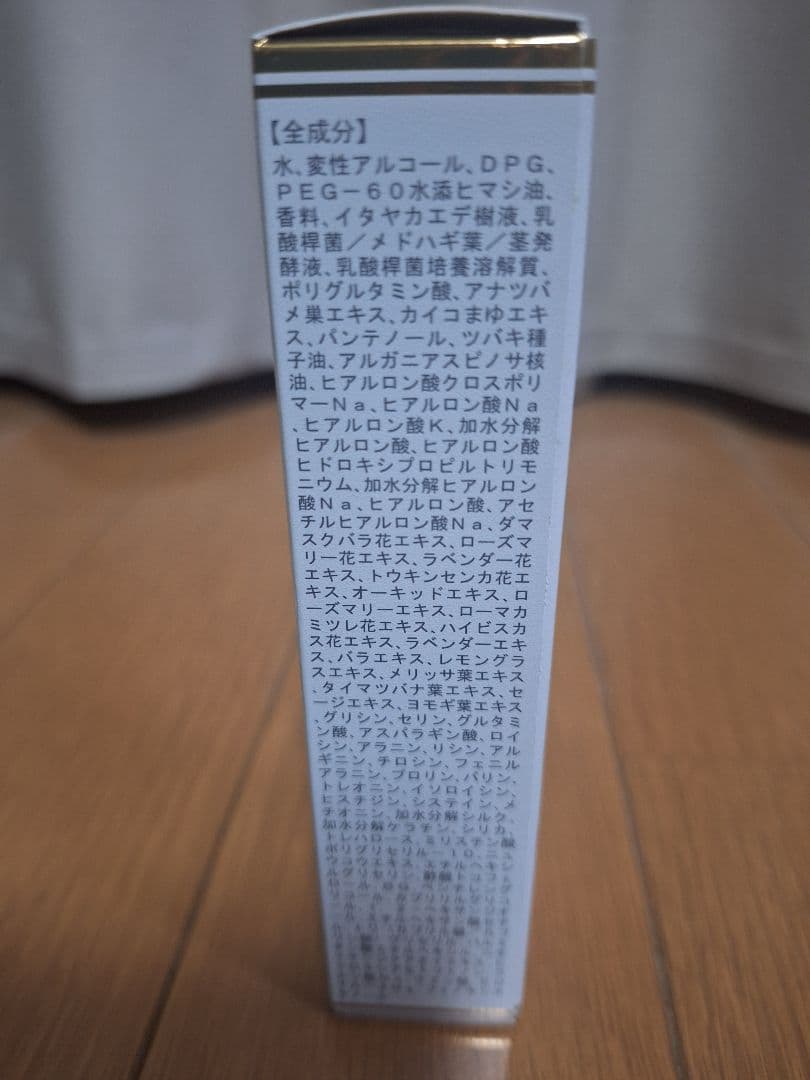 【全成分】
水、変性アルコール、ＤＰＧ、
ＰＥＧ－６０水添ヒマシ油、
香料、イタヤカエデ樹液、乳
酸桿菌／メドハギ葉／茎発
酵液、乳酸桿菌培養溶解質、
ポリグルタミン酸、アナツバ
メ巣エキス、カイコまゆエキ
ス、パンテノール、ツバキ種
子油、アルガニアスピノサ核
油、ヒアルロン酸クロスポリ
マーＮａ、ヒアルロン酸Ｎａ
、ヒアルロン酸Ｋ、加水分解
ヒアルロン酸、ヒアルロン酸
ヒドロキシプロピルトリモ
ニウム、加水分解ヒアルロン
酸Ｎａ、ヒアルロン酸、アセ
チルヒアルロン酸Ｎａ、ダマ
スクバラ花エキス、ローズマ
リー花エキス、ラベンダー花
エキス、トウキンセンカ花エ
キス、オーキッドエキス、ロ
ーズマリーエキス、ローマカ
ミツレ花エキス、ハイビスカ
ス花エキス、ラベンダーエキ
ス、バラエキス、レモングラ
スエキス、メリッサ葉エキス
、タイマツバナ葉エキス、セ
ージエキス、ヨモギ葉エキス
、グリシン、セリン、グルタミ
ン酸、アスパラギン酸、ロイ
シン、アラニン、リシン、アル
ギニン、チロシン、フェニル
アラニン、プロリン、バリン、
トレオニン、イソロイシン、
ヒスチジン、システイン、メ
チオニン、加水分解シルク、
加水分解ケラチン、シリカ、
トレハロース、ミリスチン酸
ポリグリセリル－１０、